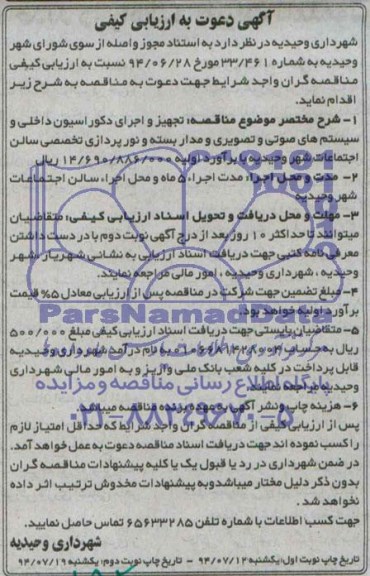 آگهی دعوت به ارزیابی کیفی
شهرداری وحیدیه در نظر دارد به استناد مجوز واصله از سوی شورای شهر
وحیدیه به شماره ۳۳/۴۶۱ مورخ ۹۴/۰۶/۲۸ نسبت به ارزیابی کیفی
مناقصه گران واجد شرایط جهت دعوت به مناقصه به شرح زیر
اقدام نماید.
۱- شرح مختصر موضوع مناقصه: تجهیز و اجرای دکوراسیون داخلی و
سیستم های صوتی و تصویری و مدار بسته و نور پردازی تخصصی سالن
اجتماعات شهر وحیدیه با برآورد اولیه ۱۴/۶۹۰/۸۸۶/۰۰۰ ریال
۲- مدت و محل اجرا: مدت اجرا، ۵ ماه و محل اجرا، سالن اجتماعات
شهر وحیدیه
۳- مهلت و محل دریافت و تحویل اسناد ارزیابی کیفی: متقاضیان
میتوانند تا حداکثر ۱۰ روز بعد از درج آگهی نوبت دوم با در دست داشتن
معرفی نامه کتبی جهت دریافت اسناد ارزیابی به نشانی شهریار، شهر
وحیدیه، شهرداری وحیدیه، امور مالی مراجعه نمایند.
۴- مبلغ تضمین جهت شرکت در مناقصه پس از ارزیابی معادل ۵% قیمت
برآورد اولیه خواهد بود.
ParsNamadData
۵- متقاضیان بایستی جهت دریافت اسناد ارزیابی کیفی مبلغ ۵۰۰/۰۰۰
ریال به حساب به نام درآمد شهرداری وحیدیه
قابل پرداخت در کلیه شعب بانک ملی واریز و به امور مالی شهرداری
وحیدیه مراجعه نمایند.
پایگاه اطلاع رسانی مناقصه و مزایده
۰۲۱-۸۸۳۴۹۶۷۰-۵
۶- هزینه چاپ و نشر آگهی به عهده برنده مناقصه میباشد.
پس از ارزیابی کیفی از مناقصه گران واجد شرایط که حداقل امتیاز لازم
را کسب نموده اند جهت دریافت اسناد مناقصه دعوت به عمل خواهد آمد.
در ضمن شهرداری در رد یا قبول یک یا کلیه پیشنهادات مناقصه گران
بدون ذکر دلیل مختار میباشد و به پیشنهادات مخدوش ترتیب اثر داده
نخواهد شد.
جهت کسب اطلاعات با شماره تلفن ۶۵۶۳۳۲۸۵ تماس حاصل نمایید.
شهرداری وحیدیه
تاریخ چاپ نوبت اول: یکشنبه ۹۴/۰۷/۱۲ - تاریخ چاپ نوبت دوم: یکشنبه ۹۴/۰۷/۱۹